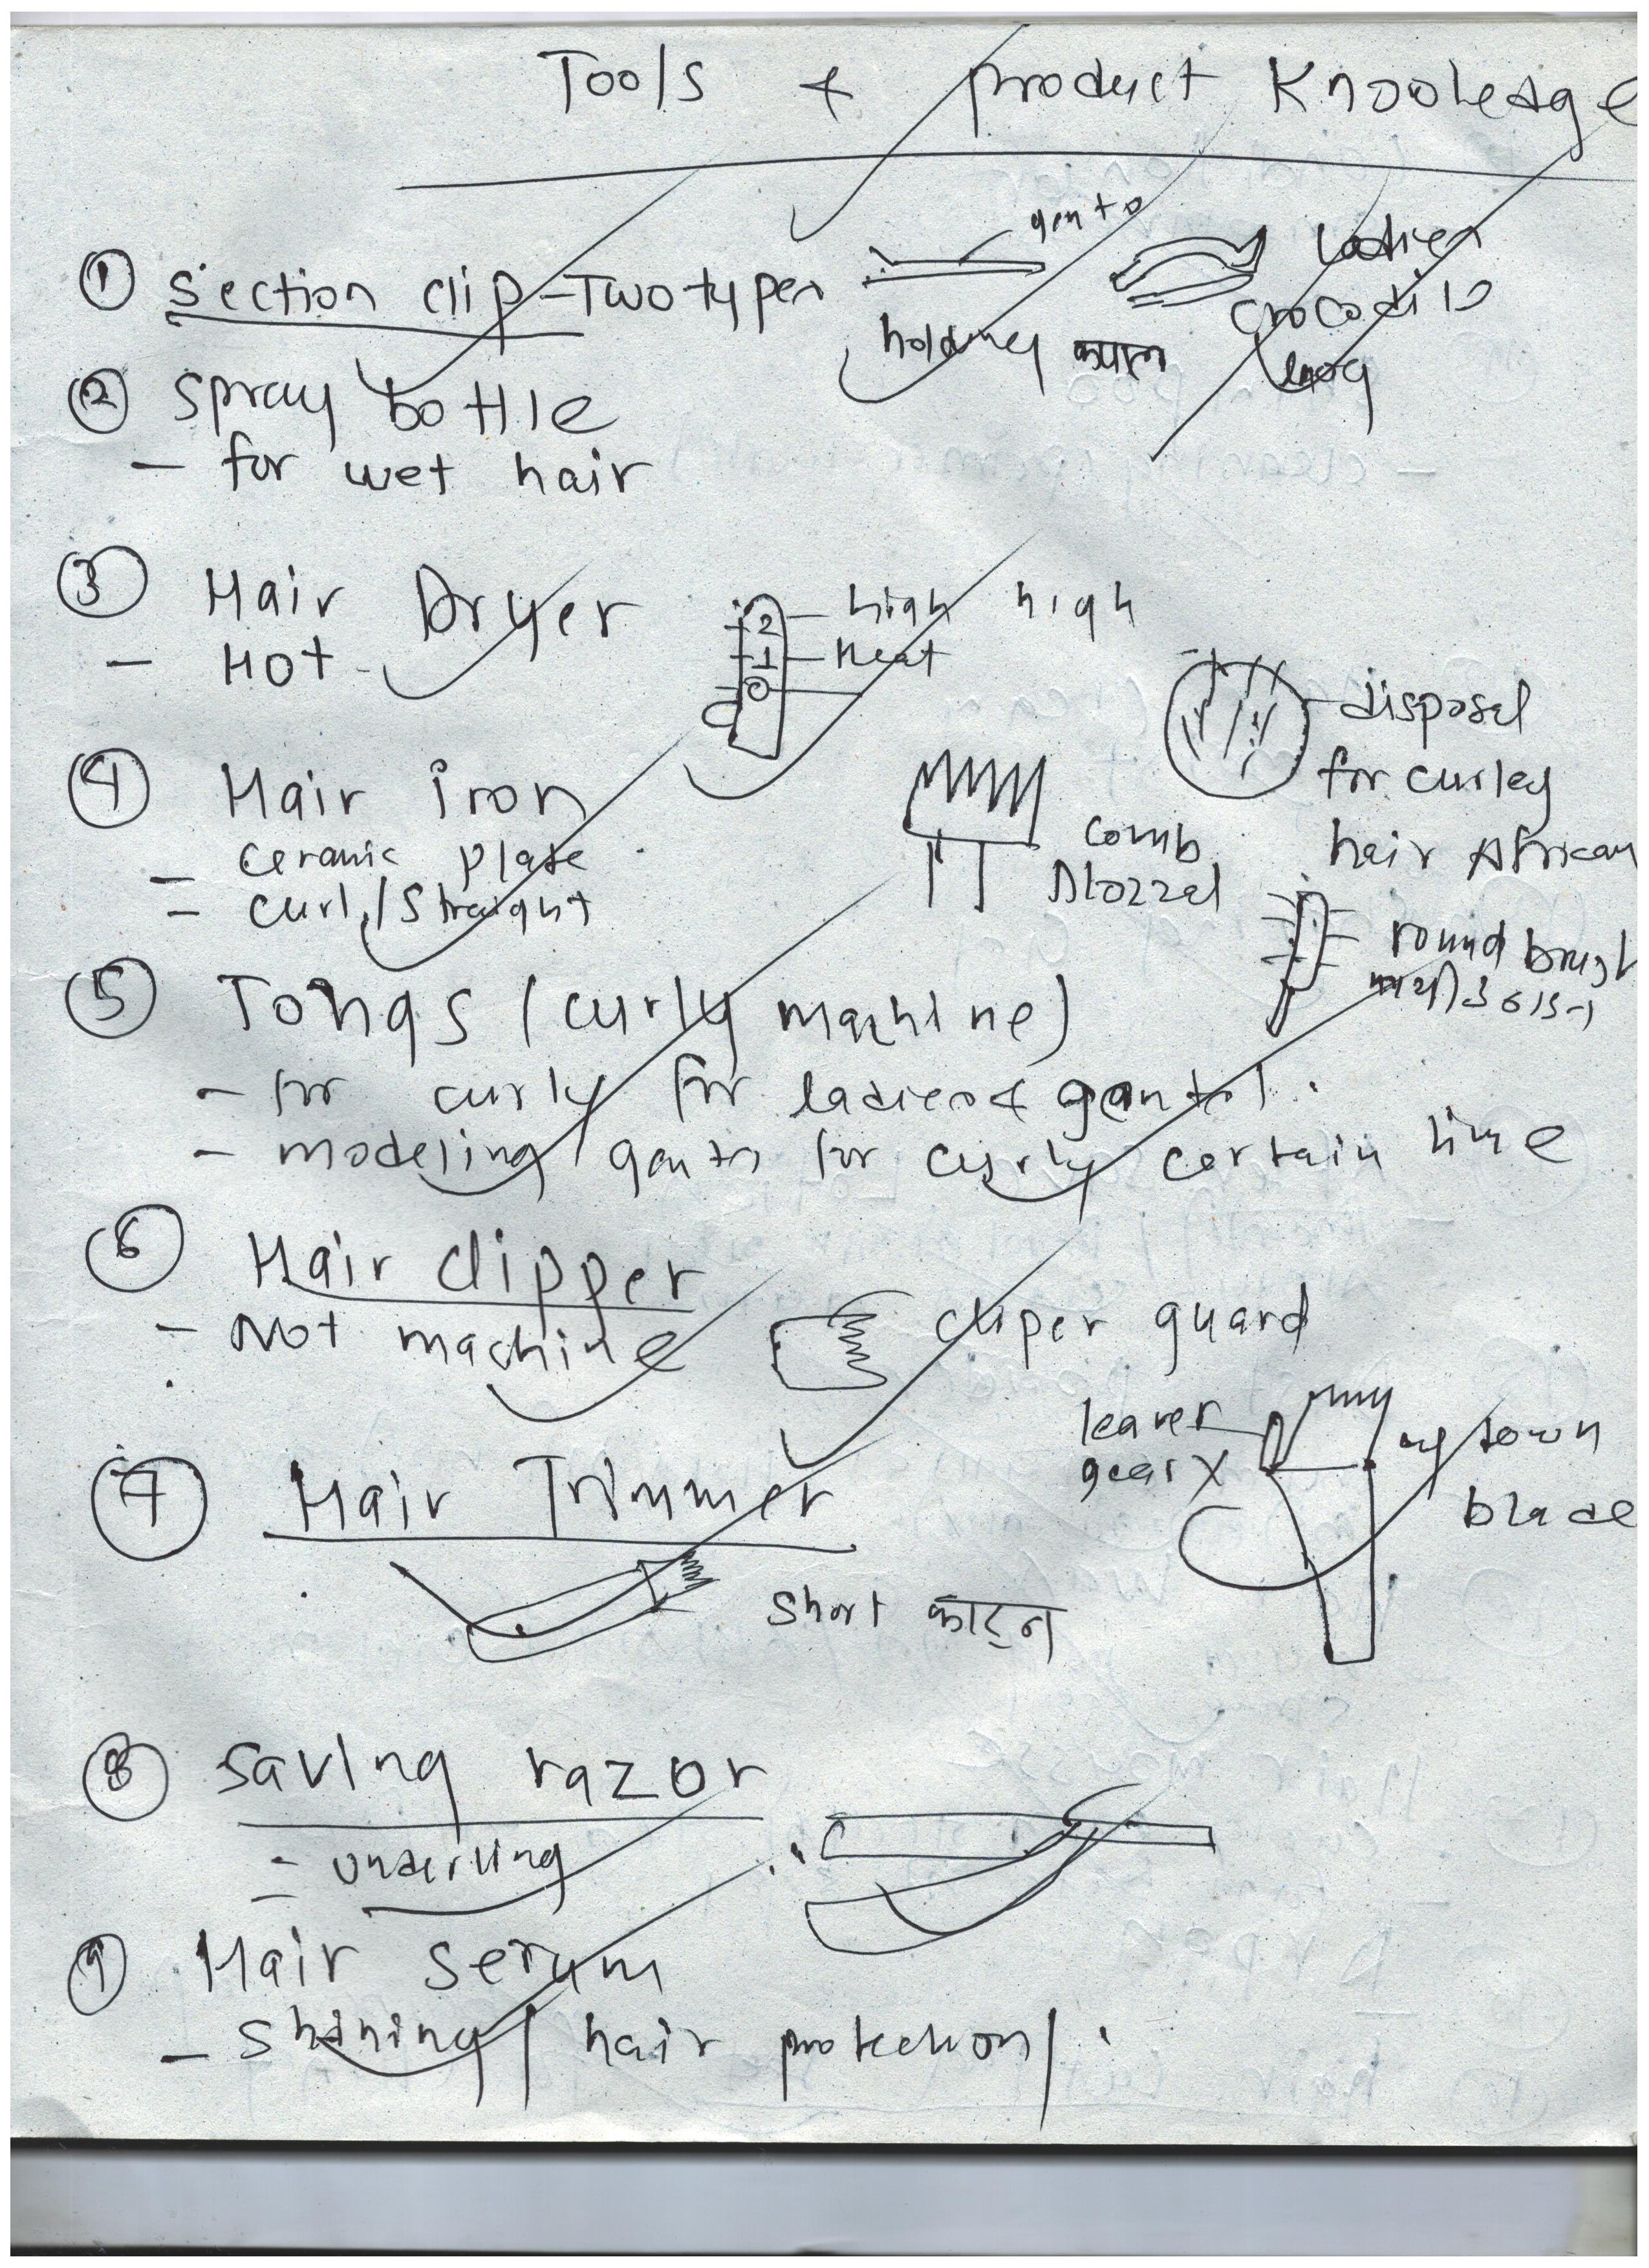 Tools & product Knooledge
① Section clip - Two types
gents
ladies
crocodile
holding कपाल
② Spray bottle
- for wet hair
③ Hair Dryer
- Hot
2 - high high
1 - Heat
0
④ Hair iron
- ceramic plate
- curl/straight
disposel
for curley
hair African
comb
round brush
⑤ Tongs (curly machine)
- for curly for ladies & gents.
- modeling gents for curly certain time
⑥ Hair clipper
- Not machine
cliper guard
leaver
gear X
up down
blade
⑦ Hair Trimmer
short काट्न
⑧ Saving razor
- underling
⑨ Hair serum
- shining / hair protection / .